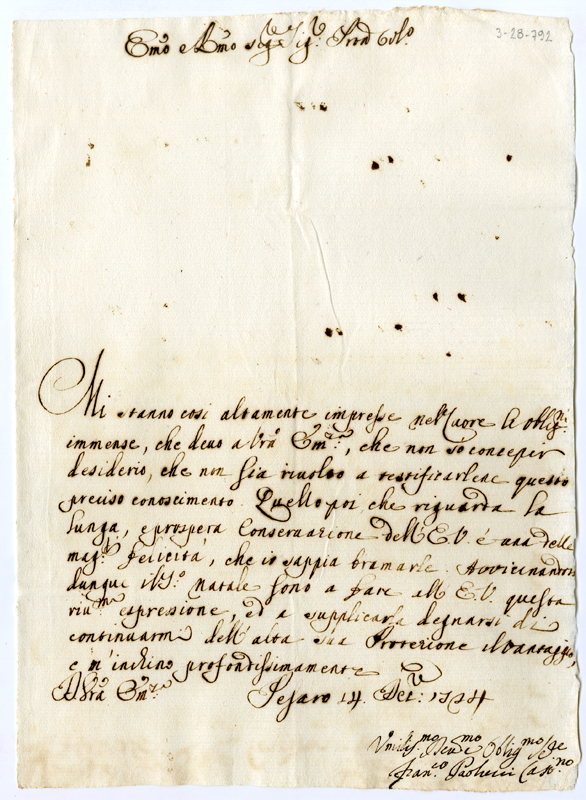 3-28-792
Emo e Rmo Sig.r Sig.r Pron Colo
Mi stanno così altamente impresse nel Cuore le oblig.ni
immense, che devo a V.ra Em.za, che non so conceper
desiderio, che non sia rivolto a testificarlene questo
preciso conoscimento. Quello poi che riguarda la
lunga, e prospera Conservazione dell'E.V. è una delle
mag.ri felicità, che io sappia bramarle. Avvicinandosi
dunque il S.o natale sono a fare all'E.V. questa
riv.ma espressione, ed a supplicarla degnarsi di
continuarmi dell'alta sua Protezione il vantaggio,
e m'inchino profondissimamente
D V.ra Em.za Pesaro 14 Xbre 1724
Umiliss.mo Dev.mo Oblig.mo Se.re
Fran.co Paolucci